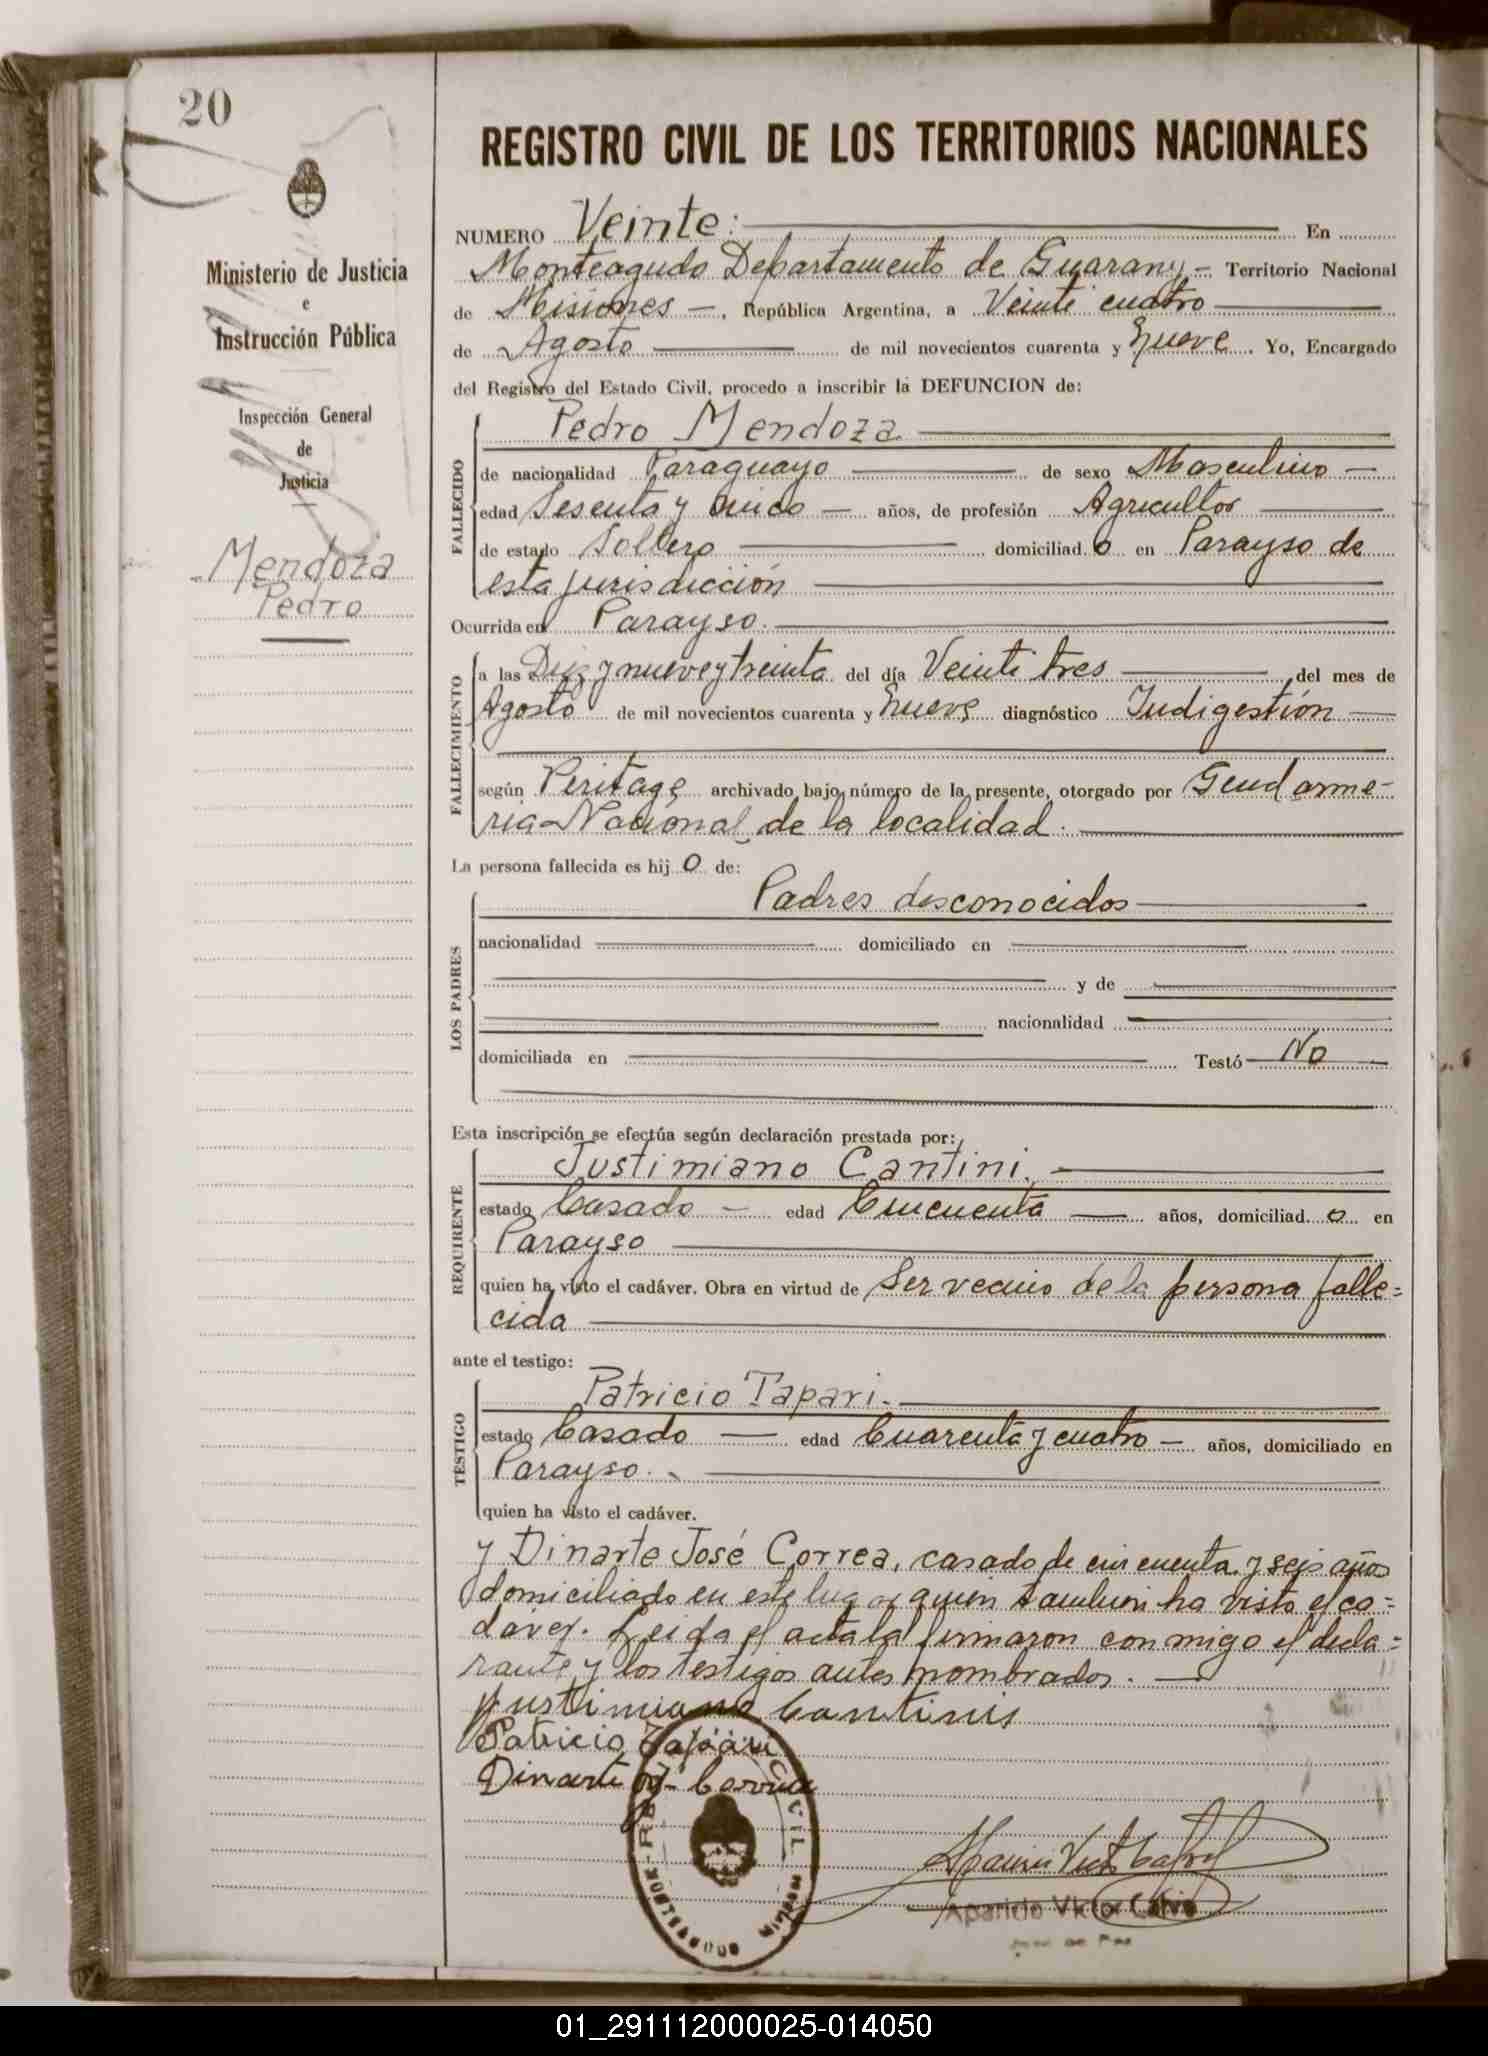 20
Ministerio de Justicia
e
Instrucción Pública
Inspección General
de
Justicia
Mendoza
Pedro
REGISTRO CIVIL DE LOS TERRITORIOS NACIONALES
NUMERO Veinte: En
Monteagudo Departamento de Guarany - Territorio Nacional
de Misiones -, República Argentina, a Veinti cuatro
de Agosto de mil novecientos cuarenta y Nueve. Yo, Encargado
del Registro del Estado Civil, procedo a inscribir la DEFUNCION de:
FALLECIDO
Pedro Mendoza
de nacionalidad Paraguayo de sexo Masculino -
edad Sesenta y cinco - años, de profesión Agricultor
de estado Soltero domiciliad o en Parayso de
esta jurisdicción
Ocurrida en Parayso.
FALLECIMIENTO
a las Diez y nueve y treinta del día Veinti tres del mes de
Agosto de mil novecientos cuarenta y Nueve diagnóstico Indigestión -
según Peritage archivado bajo número de la presente, otorgado por Gendarme-
ria Nacional de la localidad.
La persona fallecida es hij o de:
LOS PADRES
Padres desconocidos
nacionalidad domiciliado en
y de
nacionalidad
domiciliada en Testó No
Esta inscripción se efectúa según declaración prestada por:
REQUIRENTE
Justimiano Cantini.
estado Casado - edad Cincuenta - años, domiciliad o en
Parayso
quien ha visto el cadáver. Obra en virtud de Ser vecino de la persona falle=
cida
ante el testigo:
TESTIGO
Patricio Tapari.
estado Casado - edad Cuarenta y cuatro - años, domiciliado en
Parayso.
quien ha visto el cadáver.
y Dinarte José Correa, casado de cincuenta y seis años
domiciliado en este lugar quien tambien ha visto el ca=
dáver. Leida el acta la firmaron conmigo el decla=
rante y los testigos antes nombrados.
Justimiano Cantinis
Patricio Tapari
Dinarte J. Correa
CIVIL
Aparicio Victor Calvo
Juez de Paz
01_291112000025-014050